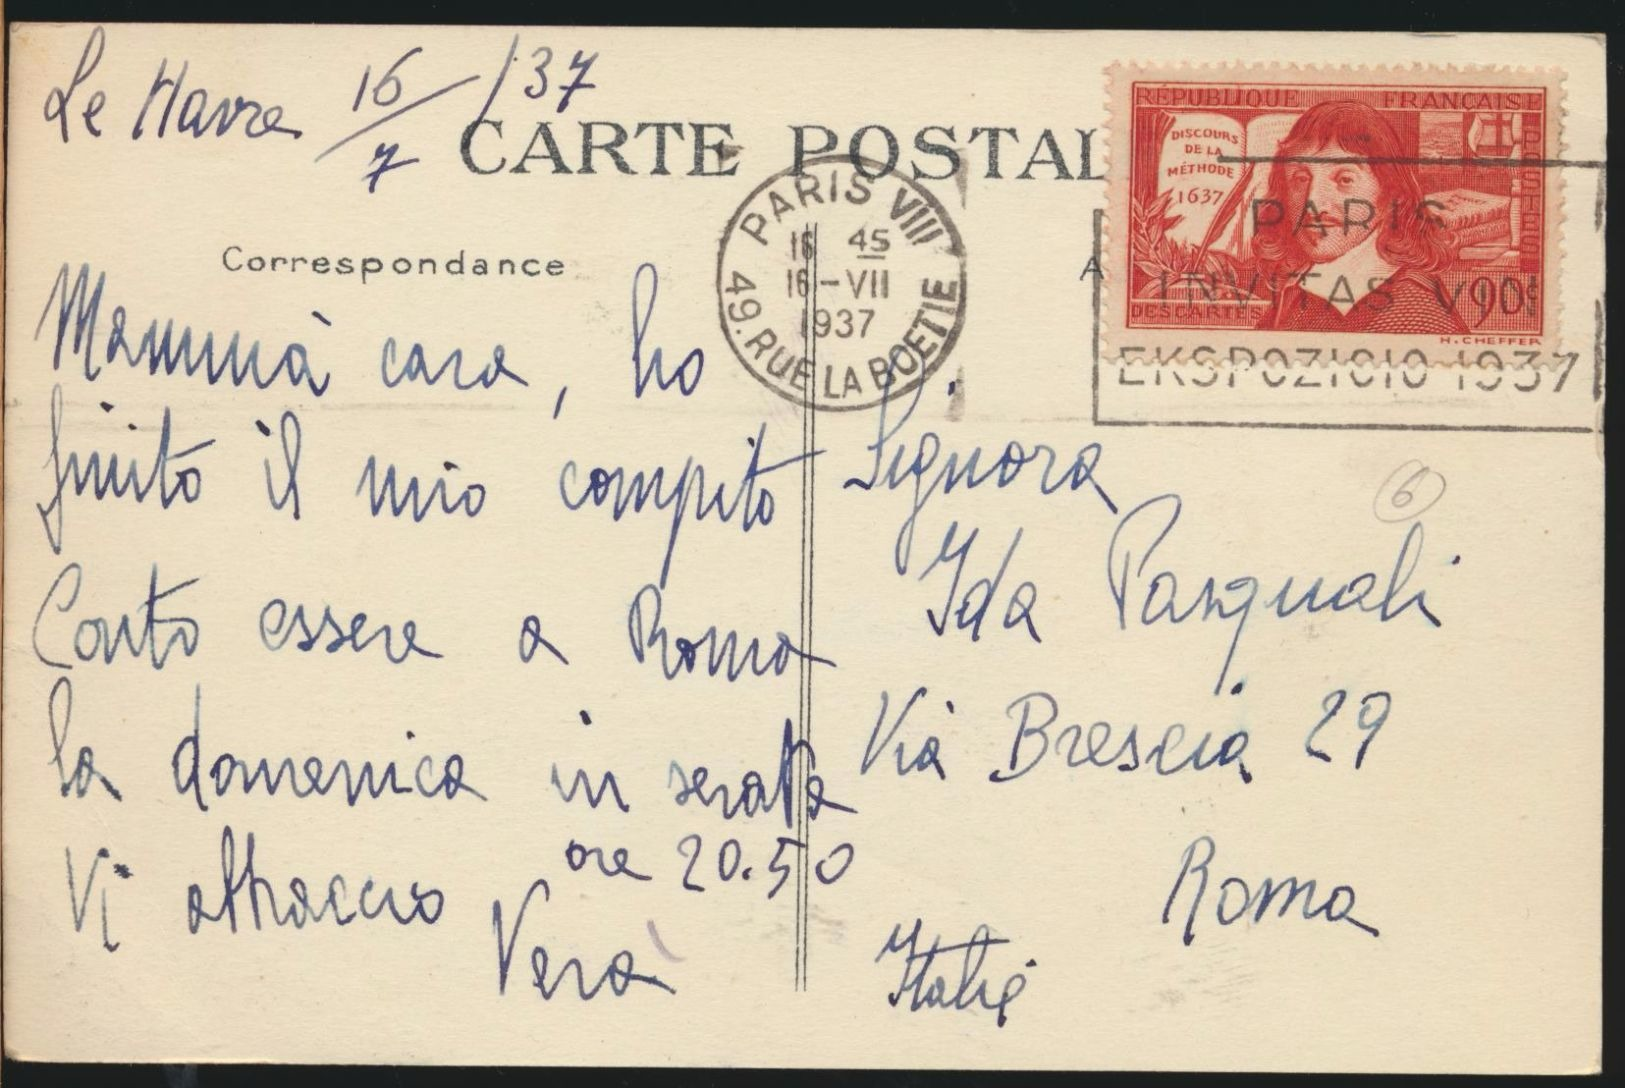 Le Havre 16/7/37
CARTE POSTAL
Correspondance
Mammà cara, ho
finito il mio compito
Conto essere a Roma
la domenica in serata
ore 20.50
Vi abbraccio
Vera
PARIS VIII
16 45
16-VII
1937
49. RUE LA BOETIE
RÉPUBLIQUE FRANÇAISE
POSTES
DISCOURS
DE LA
MÉTHODE
1637
DESCARTES
90c
H. CHEFFER
PARIS
INVITAS VIN
EKSPOZICIO 1937
A
6
Signora
Ida Pasquali
Via Brescia 29
Roma
Italie